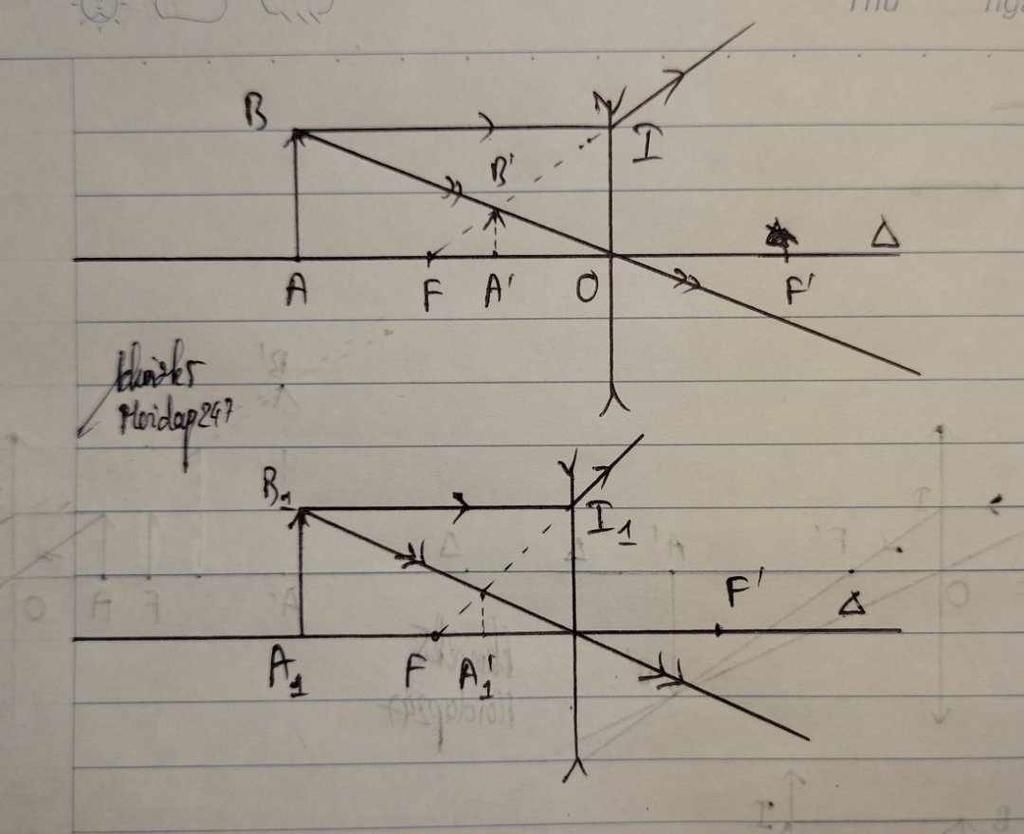 Thứ
B
I
B'
Δ
A
F
A'
O
F'
Hoidap247
B₁
I₁
F'
Δ
A₁
F
A₁'